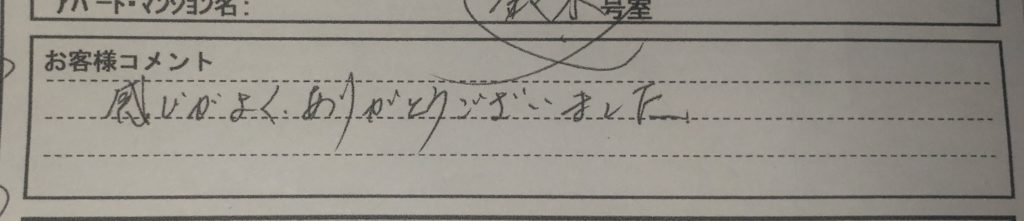 アパート・マンション名: 鈴木 号室
お客様コメント
感じがよく、ありがとうございました。